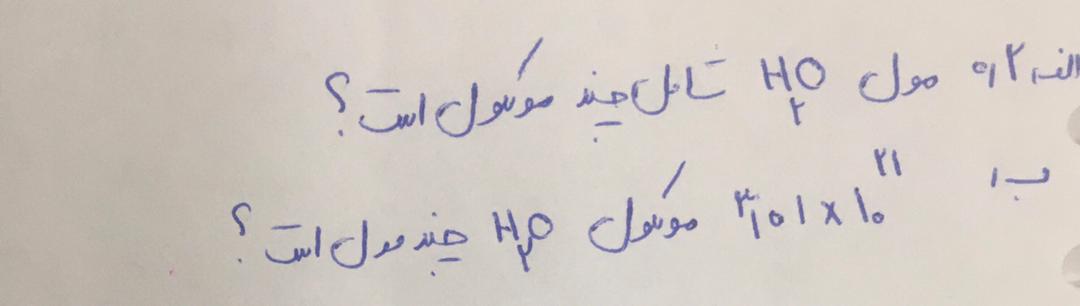 الف، ۰٫۲ مول H₂O شامل چند مولکول است؟
ب، ۳٫۰۱ × ۱۰^۲۱ مولکول H₂O چند مول است؟